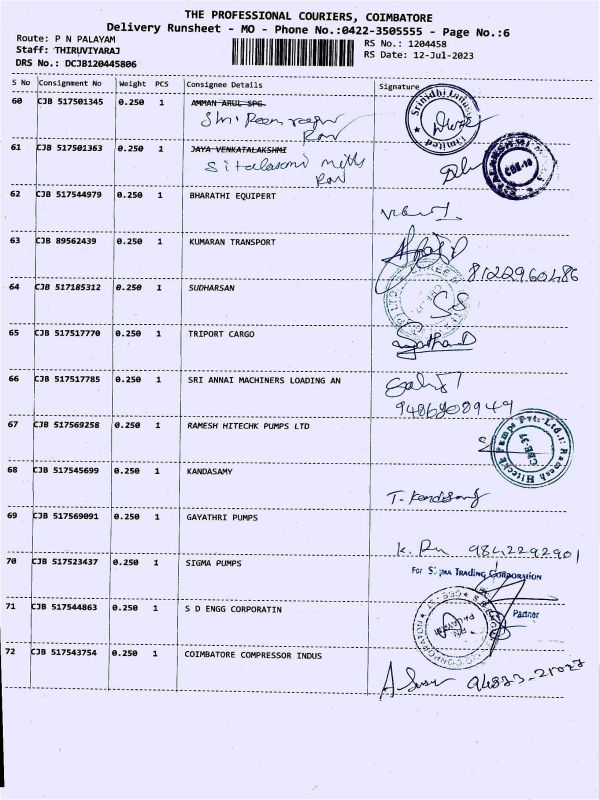 THE PROFESSIONAL COURIERS, COIMBATORE
Delivery Runsheet - MO - Phone No.:0422-3505555 - Page No.:6
Route: P N PALAYAM
RS No.: 1204458
Staff: THIRUVIYARAJ
RS Date: 12-Jul-2023
DRS No.: DCJB120445806
S No Consignment No Weight PCS Consignee Details Signature
60 CJB 517501345 0.250 1 AMMAN ARUL SPG
Srinidhi Limited
61 CJB 517501363 0.250 1 JAYA VENKATALAKSHMI
Sitalaxmi mills
CBE-18
62 CJB 517544979 0.250 1 BHARATHI EQUIPERT
63 CJB 89562439 0.250 1 KUMARAN TRANSPORT
8122960486
64 CJB 517185312 0.250 1 SUDHARSAN
SS
65 CJB 517517770 0.250 1 TRIPORT CARGO
66 CJB 517517785 0.250 1 SRI ANNAI MACHINERS LOADING AN
9486908949
67 CJB 517569258 0.250 1 RAMESH HITECHK PUMPS LTD
Ramesh Hitechk Pumps Pvt. Ltd.
CBE-37
68 CJB 517545699 0.250 1 KANDASAMY
T. Kandasamy
69 CJB 517569091 0.250 1 GAYATHRI PUMPS
9842292901
70 CJB 517523437 0.250 1 SIGMA PUMPS
For SIGMA TRADING CORPORATION
Partner
71 CJB 517544863 0.250 1 S D ENGG CORPORATIN
72 CJB 517543754 0.250 1 COIMBATORE COMPRESSOR INDUS
94873-21027